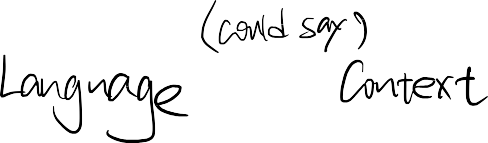 (could say)
Language Context